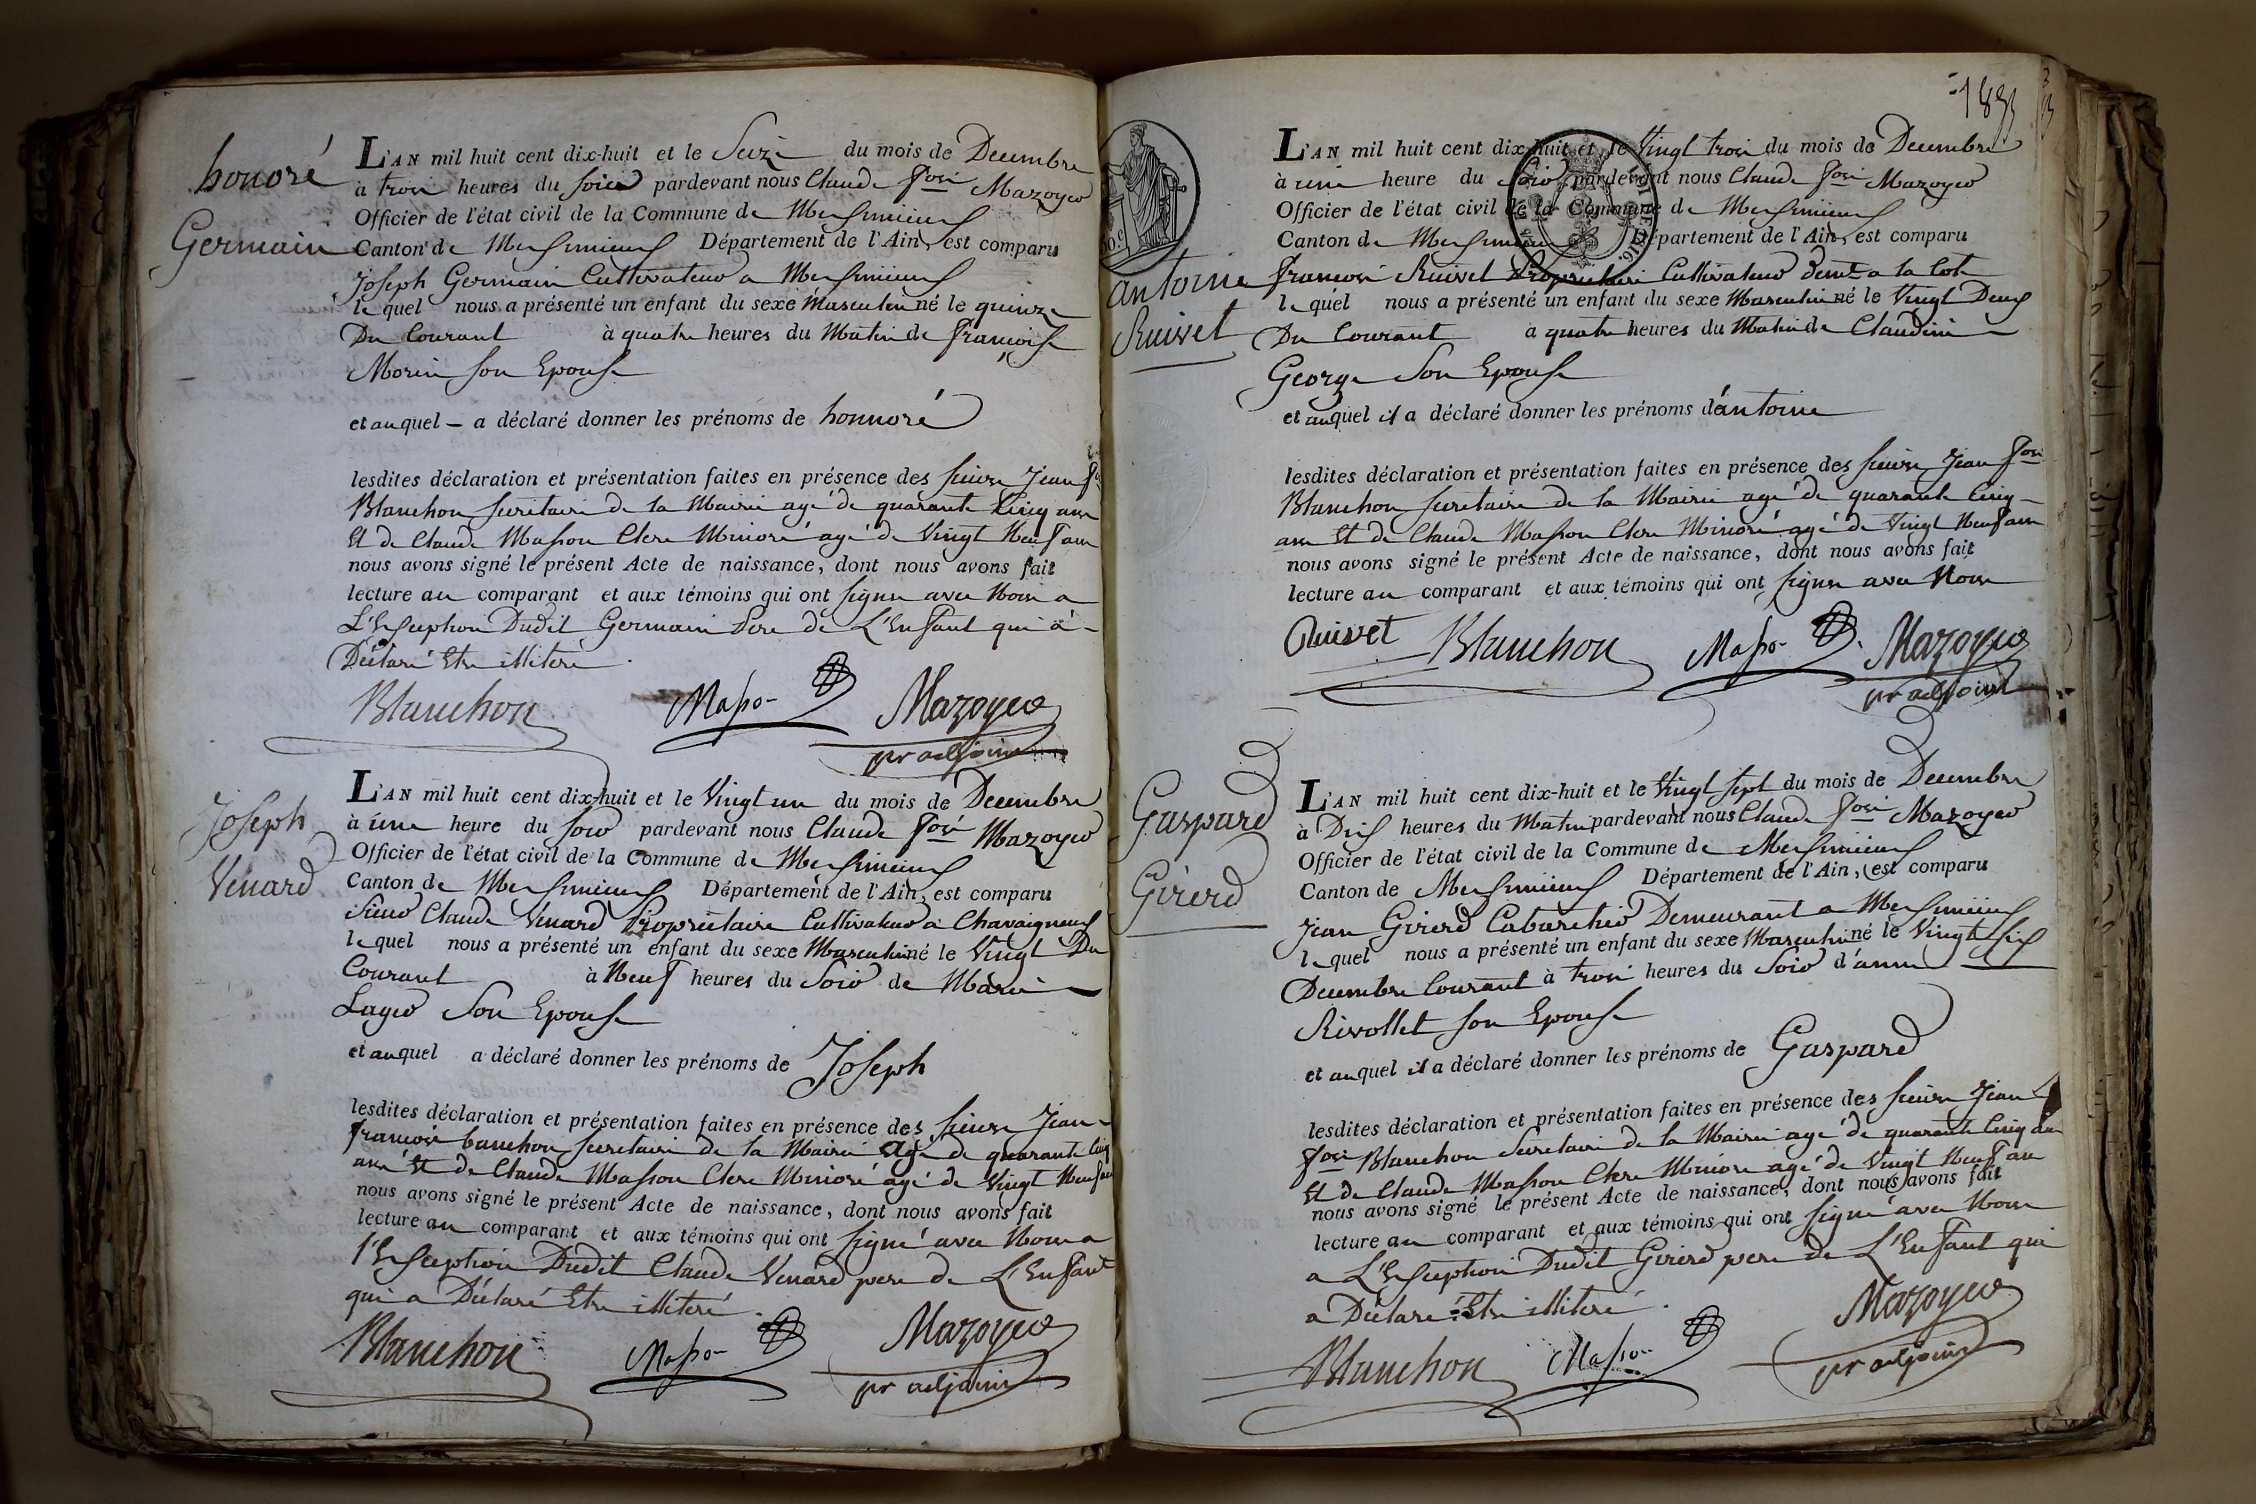 honoré
Germain
L'AN mil huit cent dix-huit et le Seize du mois de Decembre
à trois heures du soir pardevant nous Claude fois Mazoyer
Officier de l'état civil de la Commune de Meximieux
Canton de Meximieux Département de l'Ain, est comparu
Joseph Germain Cultivateur a Meximieux
lequel nous a présenté un enfant du sexe Masculin né le quinze
Du Courant à quatre heures du Matin de françoise
Morin son Epouse
et auquel - a déclaré donner les prénoms de honnoré
lesdites déclaration et présentation faites en présence des sieurs Jean
Blanchon secretaire de la Mairie agé de quarante Cinq ans
Et de Claude Masson Clerc Minoré agé de Vingt Neuf ans
nous avons signé le présent Acte de naissance, dont nous avons fait
lecture au comparant et aux témoins qui ont signes avec Nous a
L'Exseption Dudit Germain Pere de L'Enfant qui à
Déclaré Etre illiteré.
Blanchon Masson Mazoyer
pr adjoint
Joseph
Venard
L'AN mil huit cent dix-huit et le Vingt un du mois de Decembre
à une heure du soir pardevant nous Claude fois Mazoyer
Officier de l'état civil de la Commune de Meximieux
Canton de Meximieux Département de l'Ain, est comparu
sieur Claude Venard Proprietaire Cultivateur à Chavaigneux
lequel nous a présenté un enfant du sexe Masculin né le Vingt Du
Courant à Neuf heures du Soir de Marie
Layer Son Epouse
et auquel a déclaré donner les prénoms de Joseph
lesdites déclaration et présentation faites en présence des sieurs Jean
françois banchon secretaire de la Mairie agé de quarante Cinq
ans Et de Claude Masson Clerc Minoré agé de Vingt Neuf ans
nous avons signé le présent Acte de naissance, dont nous avons fait
lecture au comparant et aux témoins qui ont signé avec Nous a
l'Exseption Dudit Claude Venard pere de L'Enfant
qui a Déclaré Etre illiteré.
Blanchon Masson Mazoyer
pr adjoint
antoine
Ruivet
L'AN mil huit cent dix-huit et le Vingt trois du mois de Decembre
à une heure du Soir pardevant nous Claude fois Mazoyer
Officier de l'état civil de la Commune de Meximieux
Canton de Meximieux Département de l'Ain, est comparu
françois Ruivet Proprietaire Cultivateur demt a la Cote
lequel nous a présenté un enfant du sexe Masculin né le Vingt Deux
Du Courant à quatre heures du Matin de Claudine
George Son Epouse
et auquel il a déclaré donner les prénoms d'antoine
lesdites déclaration et présentation faites en présence des sieurs Jean fois
Blanchon secretaire de la Mairie agé de quarante Cinq
ans Et de Claude Masson Clerc Minoré agé de Vingt Neuf ans
nous avons signé le présent Acte de naissance, dont nous avons fait
lecture au comparant et aux témoins qui ont signes avec Nous
Ruivet Blanchon Masson Mazoyer
pr adjoint
Gaspard
Girerd
L'AN mil huit cent dix-huit et le Vingt Sept du mois de Decembre
à Dix heures du Matin pardevant nous Claude fois Mazoyer
Officier de l'état civil de la Commune de Meximieux
Canton de Meximieux Département de l'Ain, est comparu
Jean Girerd Cabaretier Demeurant a Meximieux
lequel nous a présenté un enfant du sexe Masculin né le Vingt Six
Decembre Courant à trois heures du Soir d'anne
Rivollet son Epouse
et auquel il a déclaré donner les prénoms de Gaspard
lesdites déclaration et présentation faites en présence des sieurs Jean
fois Blanchon Secretaire de la Mairie agé de quarante Cinq ans
Et de Claude Masson Clerc Minoré agé de Vingt Neuf ans
nous avons signé le présent Acte de naissance, dont nous avons fait
lecture au comparant et aux témoins qui ont signé avec Nous
a L'Exseption Dudit Girerd pere de L'Enfant qui
a Déclaré Etre illiteré.
Blanchon Masson Mazoyer
pr adjoint